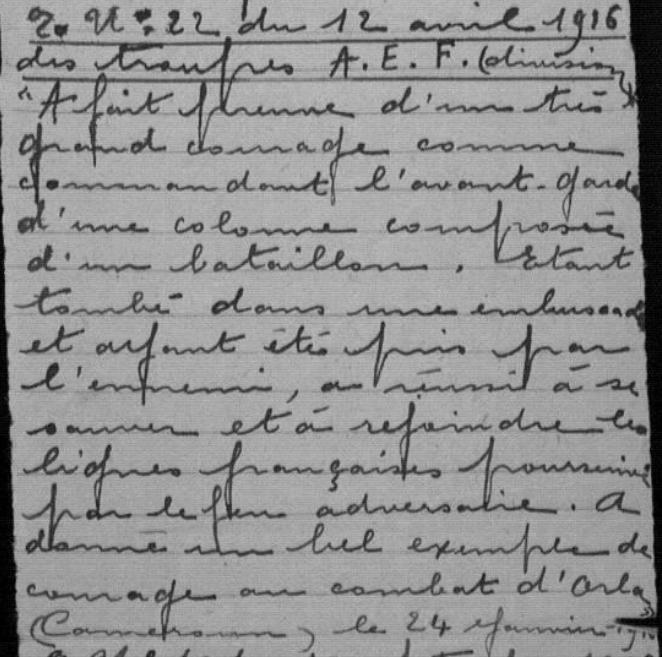 N° 22 du 12 avril 1916
des troupes A. E. F. (division)
"A fait preuve d'un très
grand courage comme
commandant l'avant-garde
d'une colonne composée
d'un bataillon. Etant
tombé dans une embuscade
et ayant étés pris par
l'ennemi, a réussi à se
sauver et à rejoindre les
lignes françaises poursuivi
par le feu adversaire. A
donné un bel exemple de
courage au combat d'
(Cameroun) le 24 Janvier